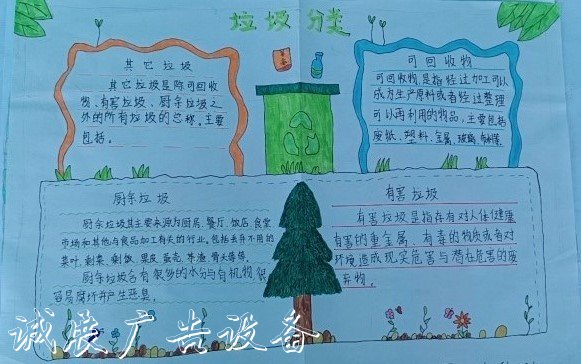 垃圾分类
其它垃圾
其它垃圾是除可回收
物、有害垃圾、厨余垃圾之
外的所有垃圾的总称。主要
包括。
可回收物
可回收物是指经过加工可以
成为生产原料或者经过整理
可以再利用的物品,主要包括
废纸、塑料、金属、玻璃、
厨余垃圾
厨余垃圾其主要来源为厨房、餐厅、饭店、食堂
市场和其他与食品加工有关的行业。包括丢弃不用的
菜叶、剩菜、剩饭、果皮、蛋壳、茶渣、骨头等等。
厨余垃圾含有很多的水分与有机物很
容易腐坏并产生恶臭。
有害垃圾
有害垃圾是指存有对人体健康
有害的重金属、有毒的物质或者对
环境造成现实危害与潜在危害的废
弃物。
诚展广告设备